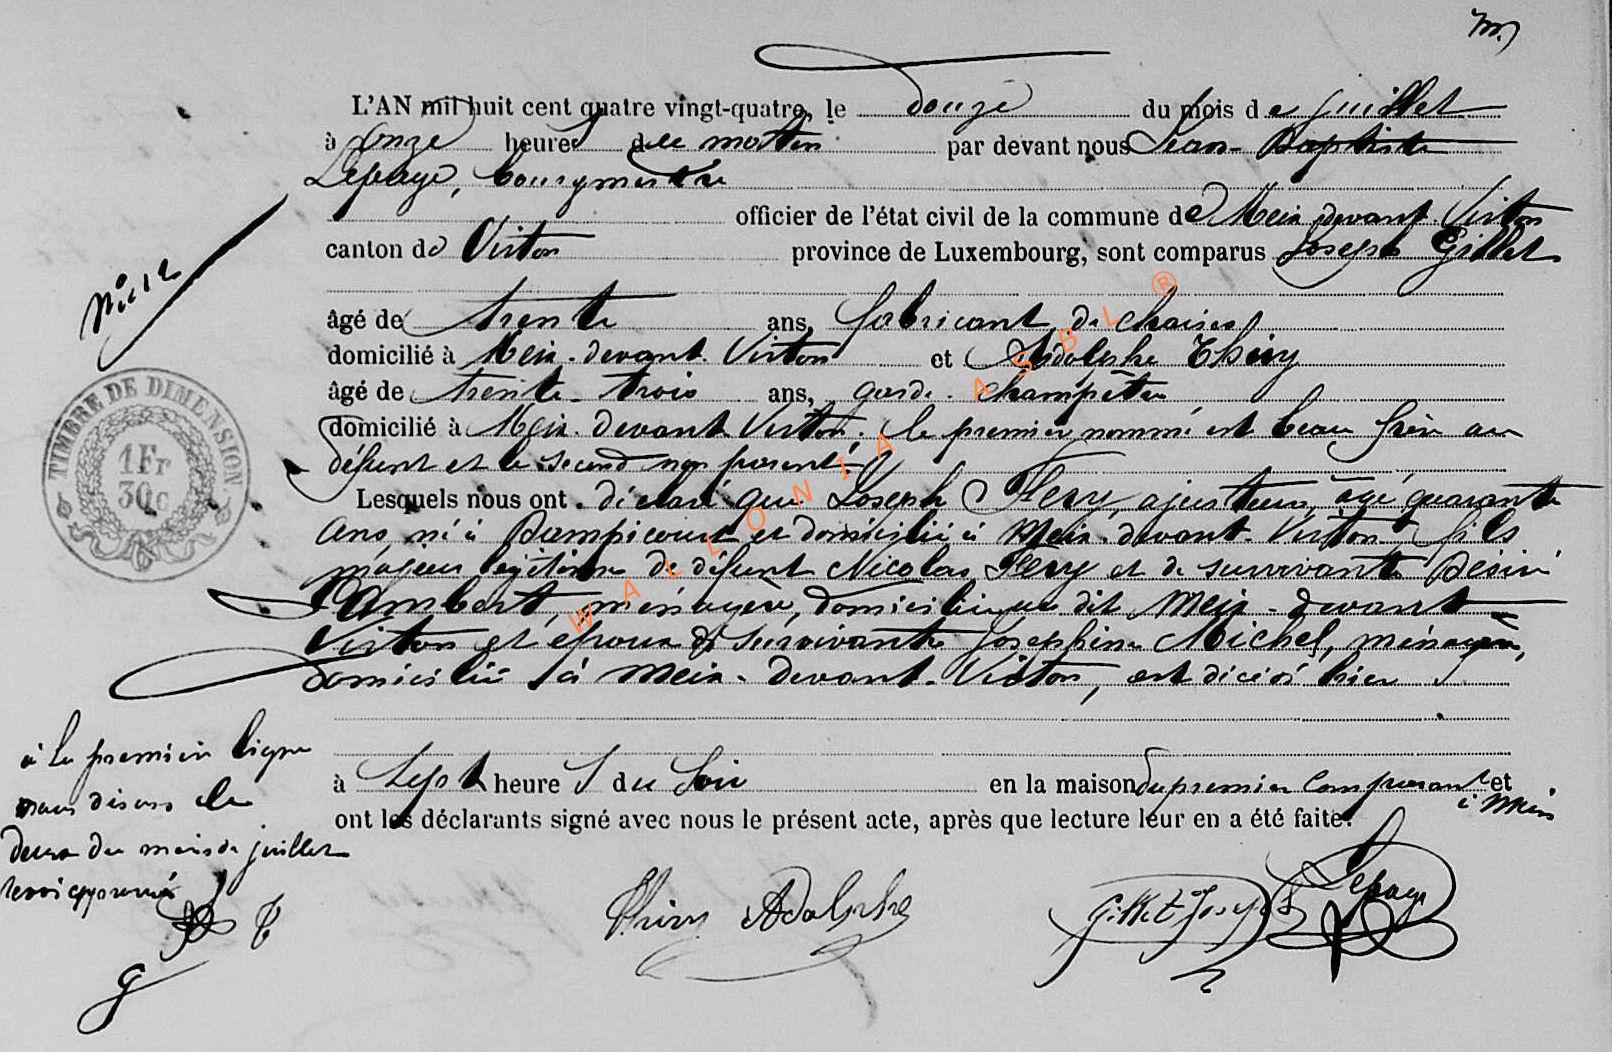 L'AN mil huit cent quatre vingt-quatre, le douze du mois de Juillet
à onze heures du matin par devant nous Jean-Baptiste
Lepage, bourgmestre
officier de l'état civil de la commune de Meix devant Virton
canton de Virton province de Luxembourg, sont comparus Joseph Gillet
âgé de trente ans, fabricant de chaises
domicilié à Meix-devant-Virton et Adolphe Thiry
âgé de trente-trois ans, garde-champêtre
domicilié à Meix-devant Virton. le premier nommé est beau frère au
défunt et le second non parenté
Lesquels nous ont déclaré que Joseph Flesy, ajusteur, âgé quarante
ans, né à Dampicourt et domicilié à Meix-devant-Virton fils
majeur légitime de défunt Nicolas Flesy et de survivante Désiré
Lambert, ménagère, domiciliée au dit Meix-devant
Virton et époux de survivante Josephine Michel, ménagère,
domiciliée à Meix-devant-Virton, est décédé hier
à Sept heures du soir en la maison du premier comparant et
à Meix
ont les déclarants signé avec nous le présent acte, après que lecture leur en a été faite.
No 12
TIMBRE DE DIMENSION
1 Fr
30c
à la première ligne
nous disons le
douze du mois de juillet
approuvé
Thiry Adolphe
Gillet Joseph
Lepage
WALLONIA ASBL ®